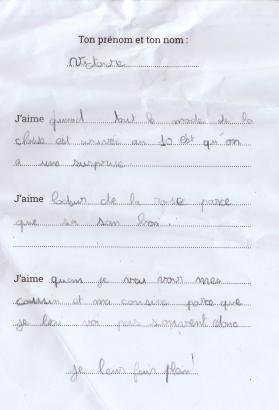 Ton prénom et ton nom :
Victoire
J'aime quand tout le monde de la
classe est arrivée au 10 est qu'on
a une surprise.
J'aime l'odeur de la rose parce
que sa san bon.
J'aime quan je vais voir mes
cousin et ma cousine parce que
je leu voi pas souvent donc
je leur fair plein!